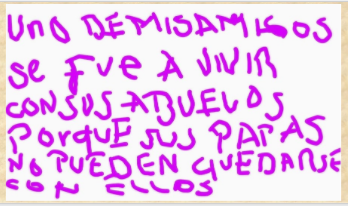 Uno DEMISAMIGOS
se FvE A VIVIR
CONSUS ABUELOS
PorquE SUS PAPAS
NO PUEDEN QUEDARSE
CON ELLOS